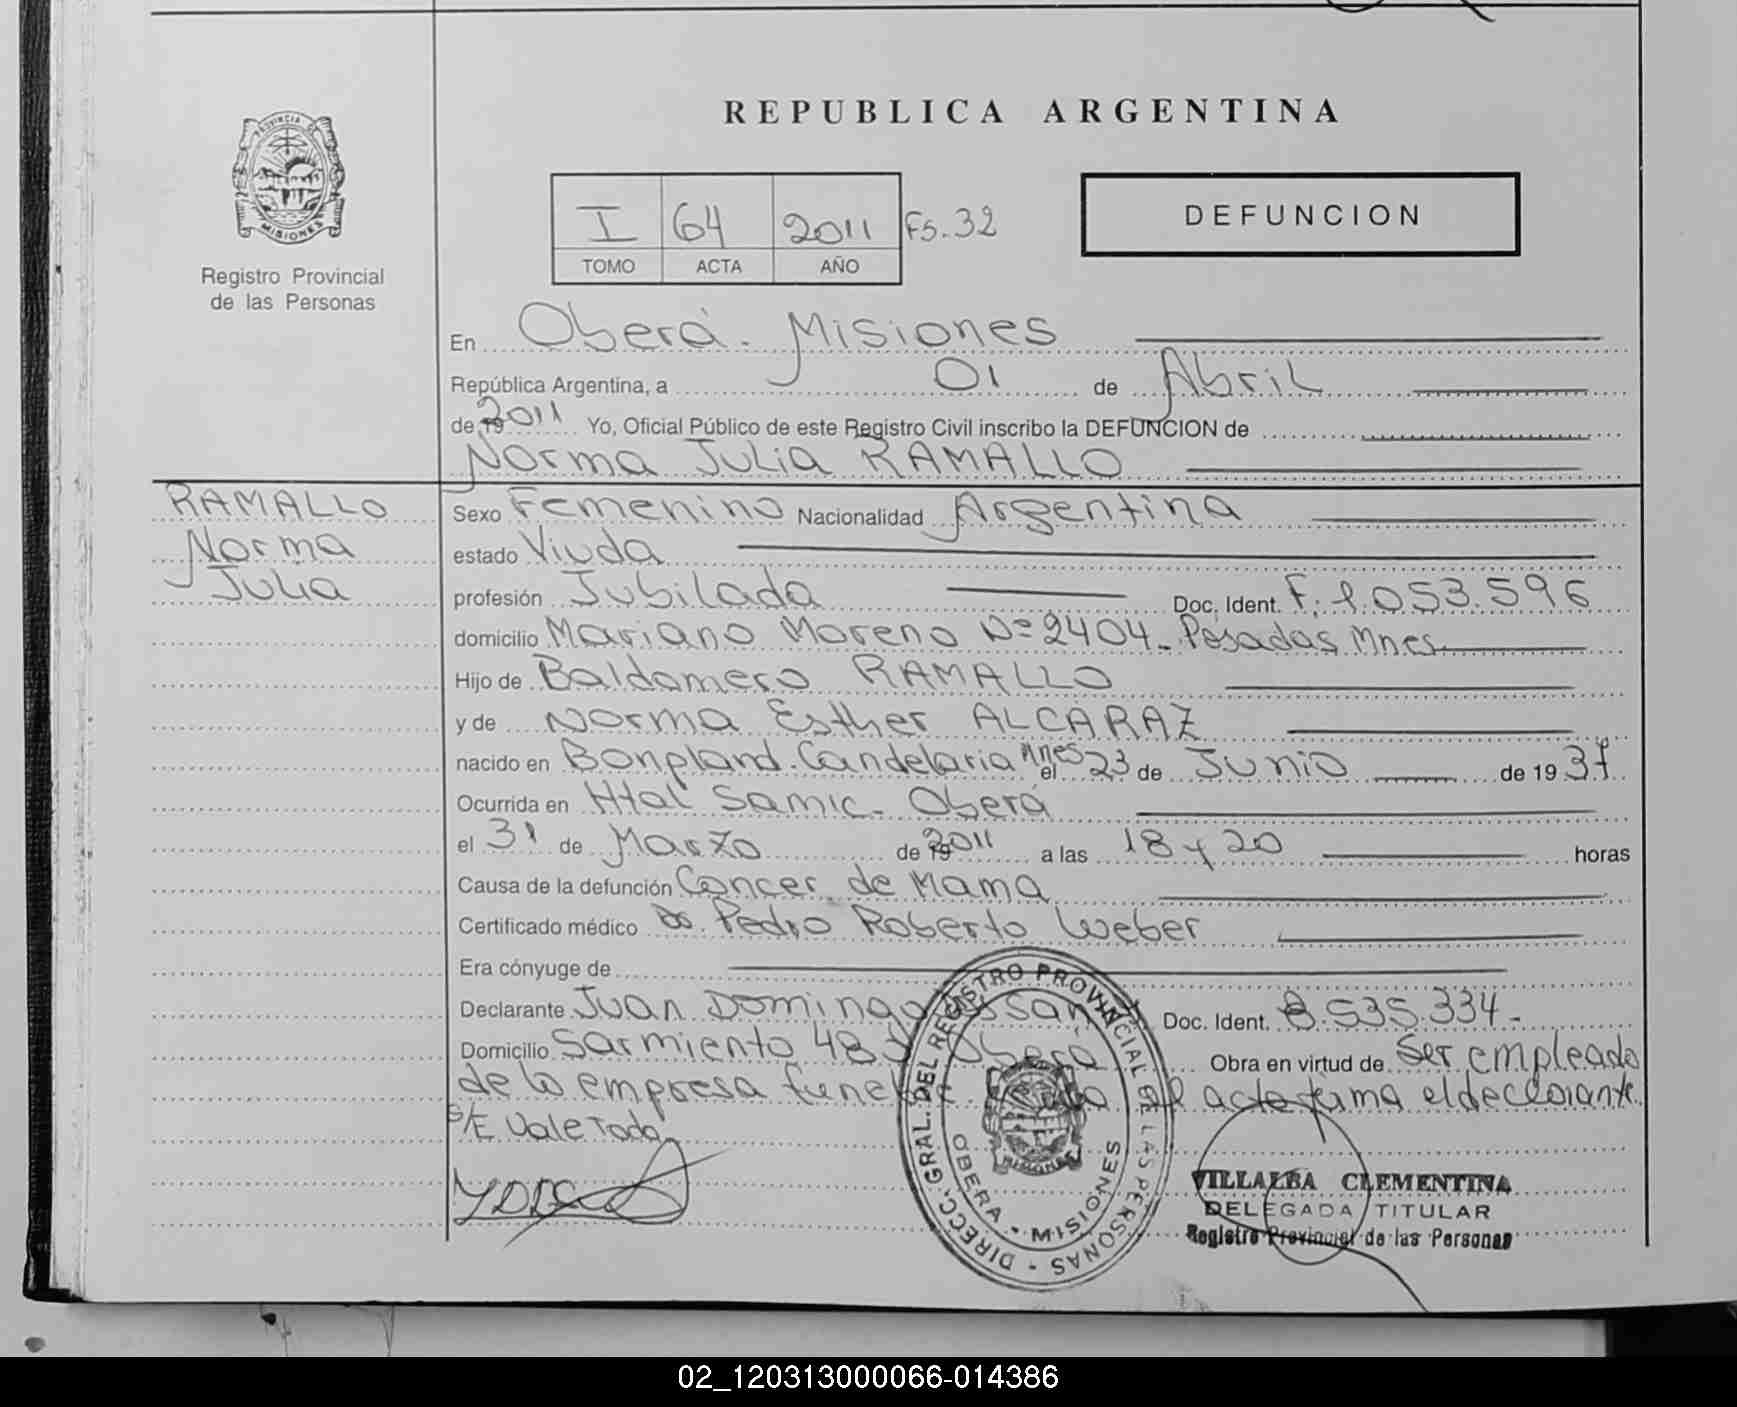 REPUBLICA ARGENTINA
PROVINCIA DE
MISIONES
Registro Provincial
de las Personas
I 64 2011 Fs. 32
TOMO ACTA AÑO
DEFUNCION
En Oberá. Misiones
República Argentina, a 01 de Abril
de 19 2011 Yo, Oficial Público de este Registro Civil inscribo la DEFUNCION de
Norma Julia RAMALLO
RAMALLO
Norma
Julia
Sexo Femenino Nacionalidad Argentina
estado Viuda
profesión Jubilada Doc. Ident. F. 1.053.596
domicilio Mariano Moreno Nº 2404. Posadas Mnes
Hijo de Baldomero RAMALLO
y de Norma Esther ALCARAZ
nacido en Bonpland. Candelaria Mnes el 23 de Junio de 19 37
Ocurrida en Htal Samic. Oberá
el 31 de Marzo de 19 2011 a las 18 y 20 horas
Causa de la defunción Cancer de Mama
Certificado médico Dr. Pedro Roberto Weber
Era cónyuge de
Declarante Juan Domingo Doc. Ident. 8.535.334-
Domicilio Sarmiento Oberá Obra en virtud de Ser empleado
de la empresa el acta firma el declarante.
S/E Vale Todo
DIRECC. GRAL. DEL REGISTRO PROVINCIAL DE LAS PERSONAS -
OBERA - MISIONES
MISIONES
VILLALBA CLEMENTINA
DELEGADA TITULAR
Registro Provincial de las Personas
02_120313000066-014386